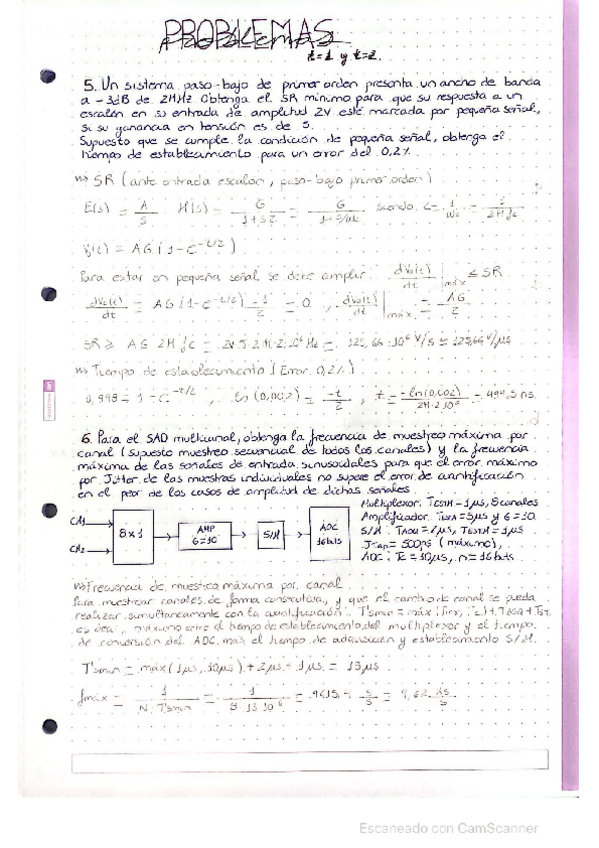 PROBLEMAS
t=1 y t=2.
5. Un sistema paso-bajo de primer orden presenta un ancho de banda
a -3dB de 2MHz Obtenga el SR mínimo para que su respuesta a un
escalón en su entrada de amplitud 2V esté marcada por pequeña señal,
si su ganancia en tensión es de 5.
Supuesto que se cumple la condición de pequeña señal, obtenga el
tiempo de establecimiento para un error del 0,2%
SR (ante entrada escalon, paso-bajo primer orden)
E(s) = A/S H(s) = G/1+sτ = G/1+s/ωc siendo τ = 1/ωc = 1/2π fc
Vo(t) = AG (1-e^-t/τ)
Para estar en pequeña señal se debe cumplir dVo(t)/dt |máx ≤ SR
SR ≥ AG 2π fc = 2V·5·2π·2·10⁶ Hz = 125,66·10⁶ V/s ≈ 125,66 V/μs
Tiempo de establecimiento (Error 0,2%)
0,998 = 1 - e^-t/τ , ln (0,002) = -t/τ , t = -ln(0,002)/2π·2·10⁶ = 494,5 ns.
6. Para el SAD multicanal, obtenga la frecuencia de muestreo máxima por
canal (supuesto muestreo secuencial de todos los canales) y la frecuencia
máxima de las señales de entrada sinusoidales para que el error máximo
por Jitter de las muestras individuales no supere el error de cuantificación
en el peor de los casos de amplitud de dichas señales.
Multiplexor: = 1μs, 8 canales
CH1
8x1
AMP
G=10
S/H
ADC
16bits
CH2
Amplificador: = 3μs y G=10
S/H: TADQ = 2μs, = 1μs
= 500ps (máximo),
ADC: Tc = 10μs, n = 16 bits
Frecuencia de muestreo máxima por canal
Para muestrear canales de forma consecutiva, y que el cambio de canal se pueda
realizar simultaneamente con la cuantificación:
es decir, máximo entre el tiempo de establecimiento del multiplexor y el tiempo
de conversión del ADC, más el tiempo de adquisición y establecimiento S/H.
Tsmin = máx (1μs, 10μs) + 2μs + 1μs = 13μs
fmáx = 1/N·Tsmin = 1/8·13·10⁻⁶ =
Escaneado con CamScanner